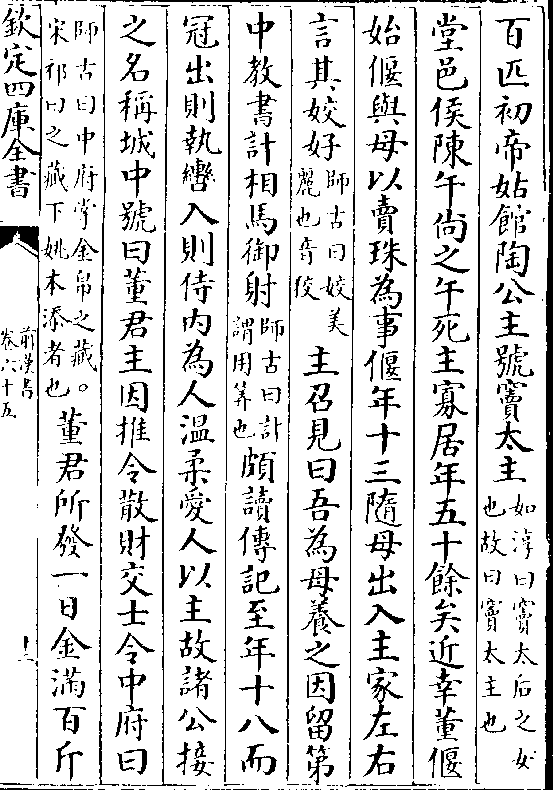 百匹初帝姑館陶公主號竇太主如淳曰竇太后之女也故曰竇太主也
堂邑侯陳午尚之午死主寡居年五十餘矣近幸董偃
始偃與母以賣珠為事偃年十三隨母出入主家左右
言其姣好師古曰姣美麗也音狡主召見曰吾為母養之因留第
中教書計相馬御射師古曰計謂用筭也頗讀傳記至年十八而
冠出則執轡入則侍內為人溫柔愛人以主故諸公接
之名稱城中號曰董君主因推令散財交士令中府曰
師古曰中府掌金帛之藏。宋祁曰之藏下姚本添者也董君所發一日金滿百斤
欽定四庫全書
前漢書
卷六十五
十二